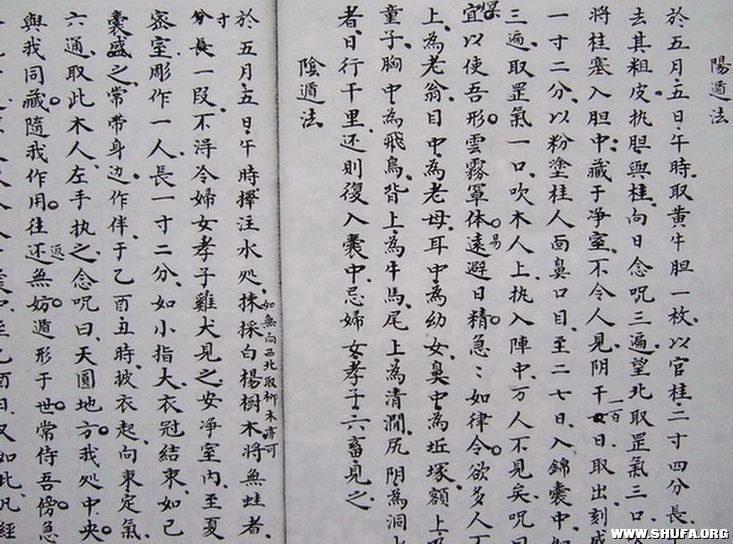 陽遁法
於五月五日午時取黃牛胆一枚以官桂二寸四分長
去其粗皮执胆與桂向日念呪三遍望北取罡氣三口
將桂塞入胆中藏于净室不令人見阴干一百日取出刻成
一寸二分以粉塗桂人面鼻口目至二七日入錦囊中如
三遍取罡氣一口吹木人上执入陣中万人不見矣呪曰
宜以使吾形雲霧罩体遠避日精急：如律令欲多人
上為老翁目中為老母耳中為幼女鼻中為坵塚額上
童子胸中為飛鳥背上為牛馬尾上為清澗尻阴為洞
者日行千里还則復入囊中忌婦女孝子六畜見之
陰遁法
於五月五日午時擇注水処採白楊樹木將無蛀者
如無向西北取柳木亦可
寸分長一段不淂令婦女孝子雞犬見之安凈室內至夏
宻室彫作一人長一寸二分如小指大衣冠結束如己
囊盛之常带身边作伴于乙酉丑時披衣起向東定氣
六通取此木人左手执之念呪曰天圓地方我処中央
與我同藏隨我作用往还無妨遁形于世常侍吾傍急
WWW.SHUFA.ORG